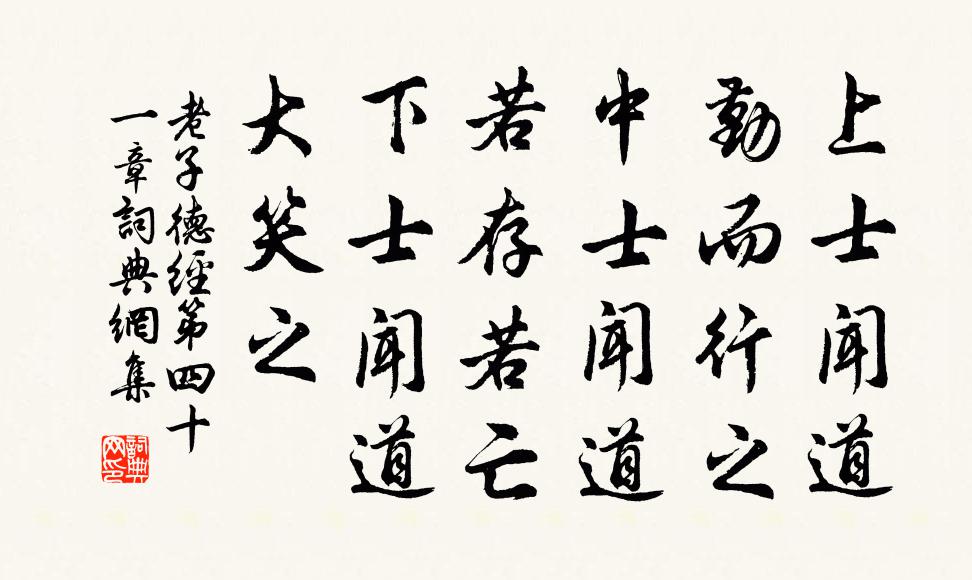 上士闻道
勤而行之
中士闻道
若存若亡
下士闻道
大笑之
老子德經第四十
一章詞典網集
詞典
网印